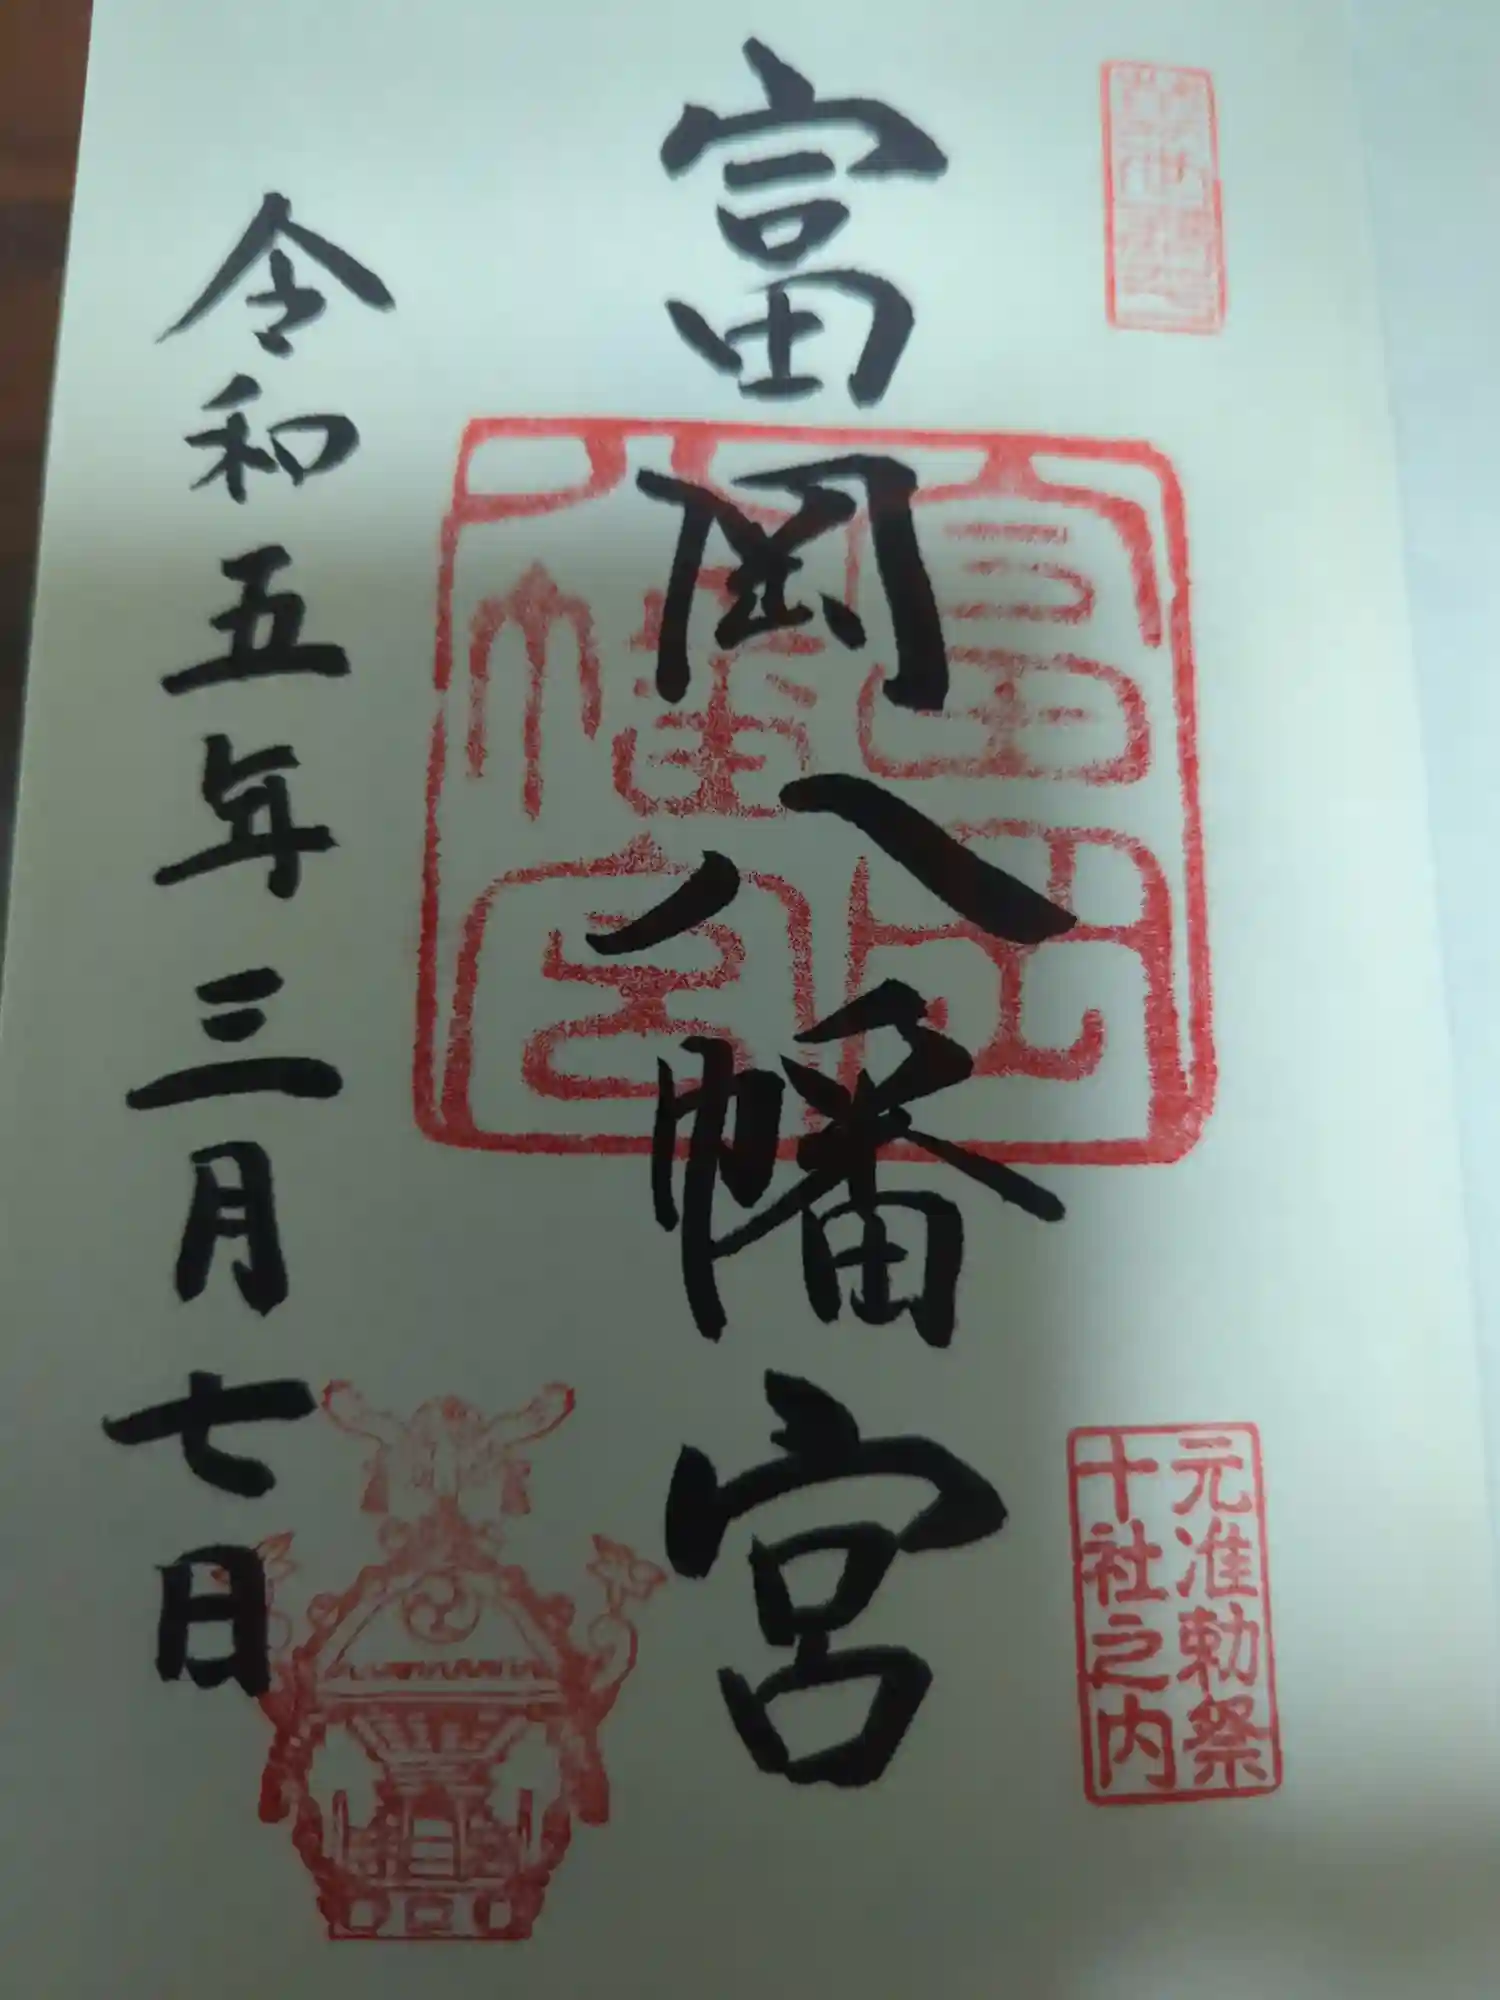 元准勅祭
十社之内
富岡八幡宮
富岡八幡宮
令和五年三月七日